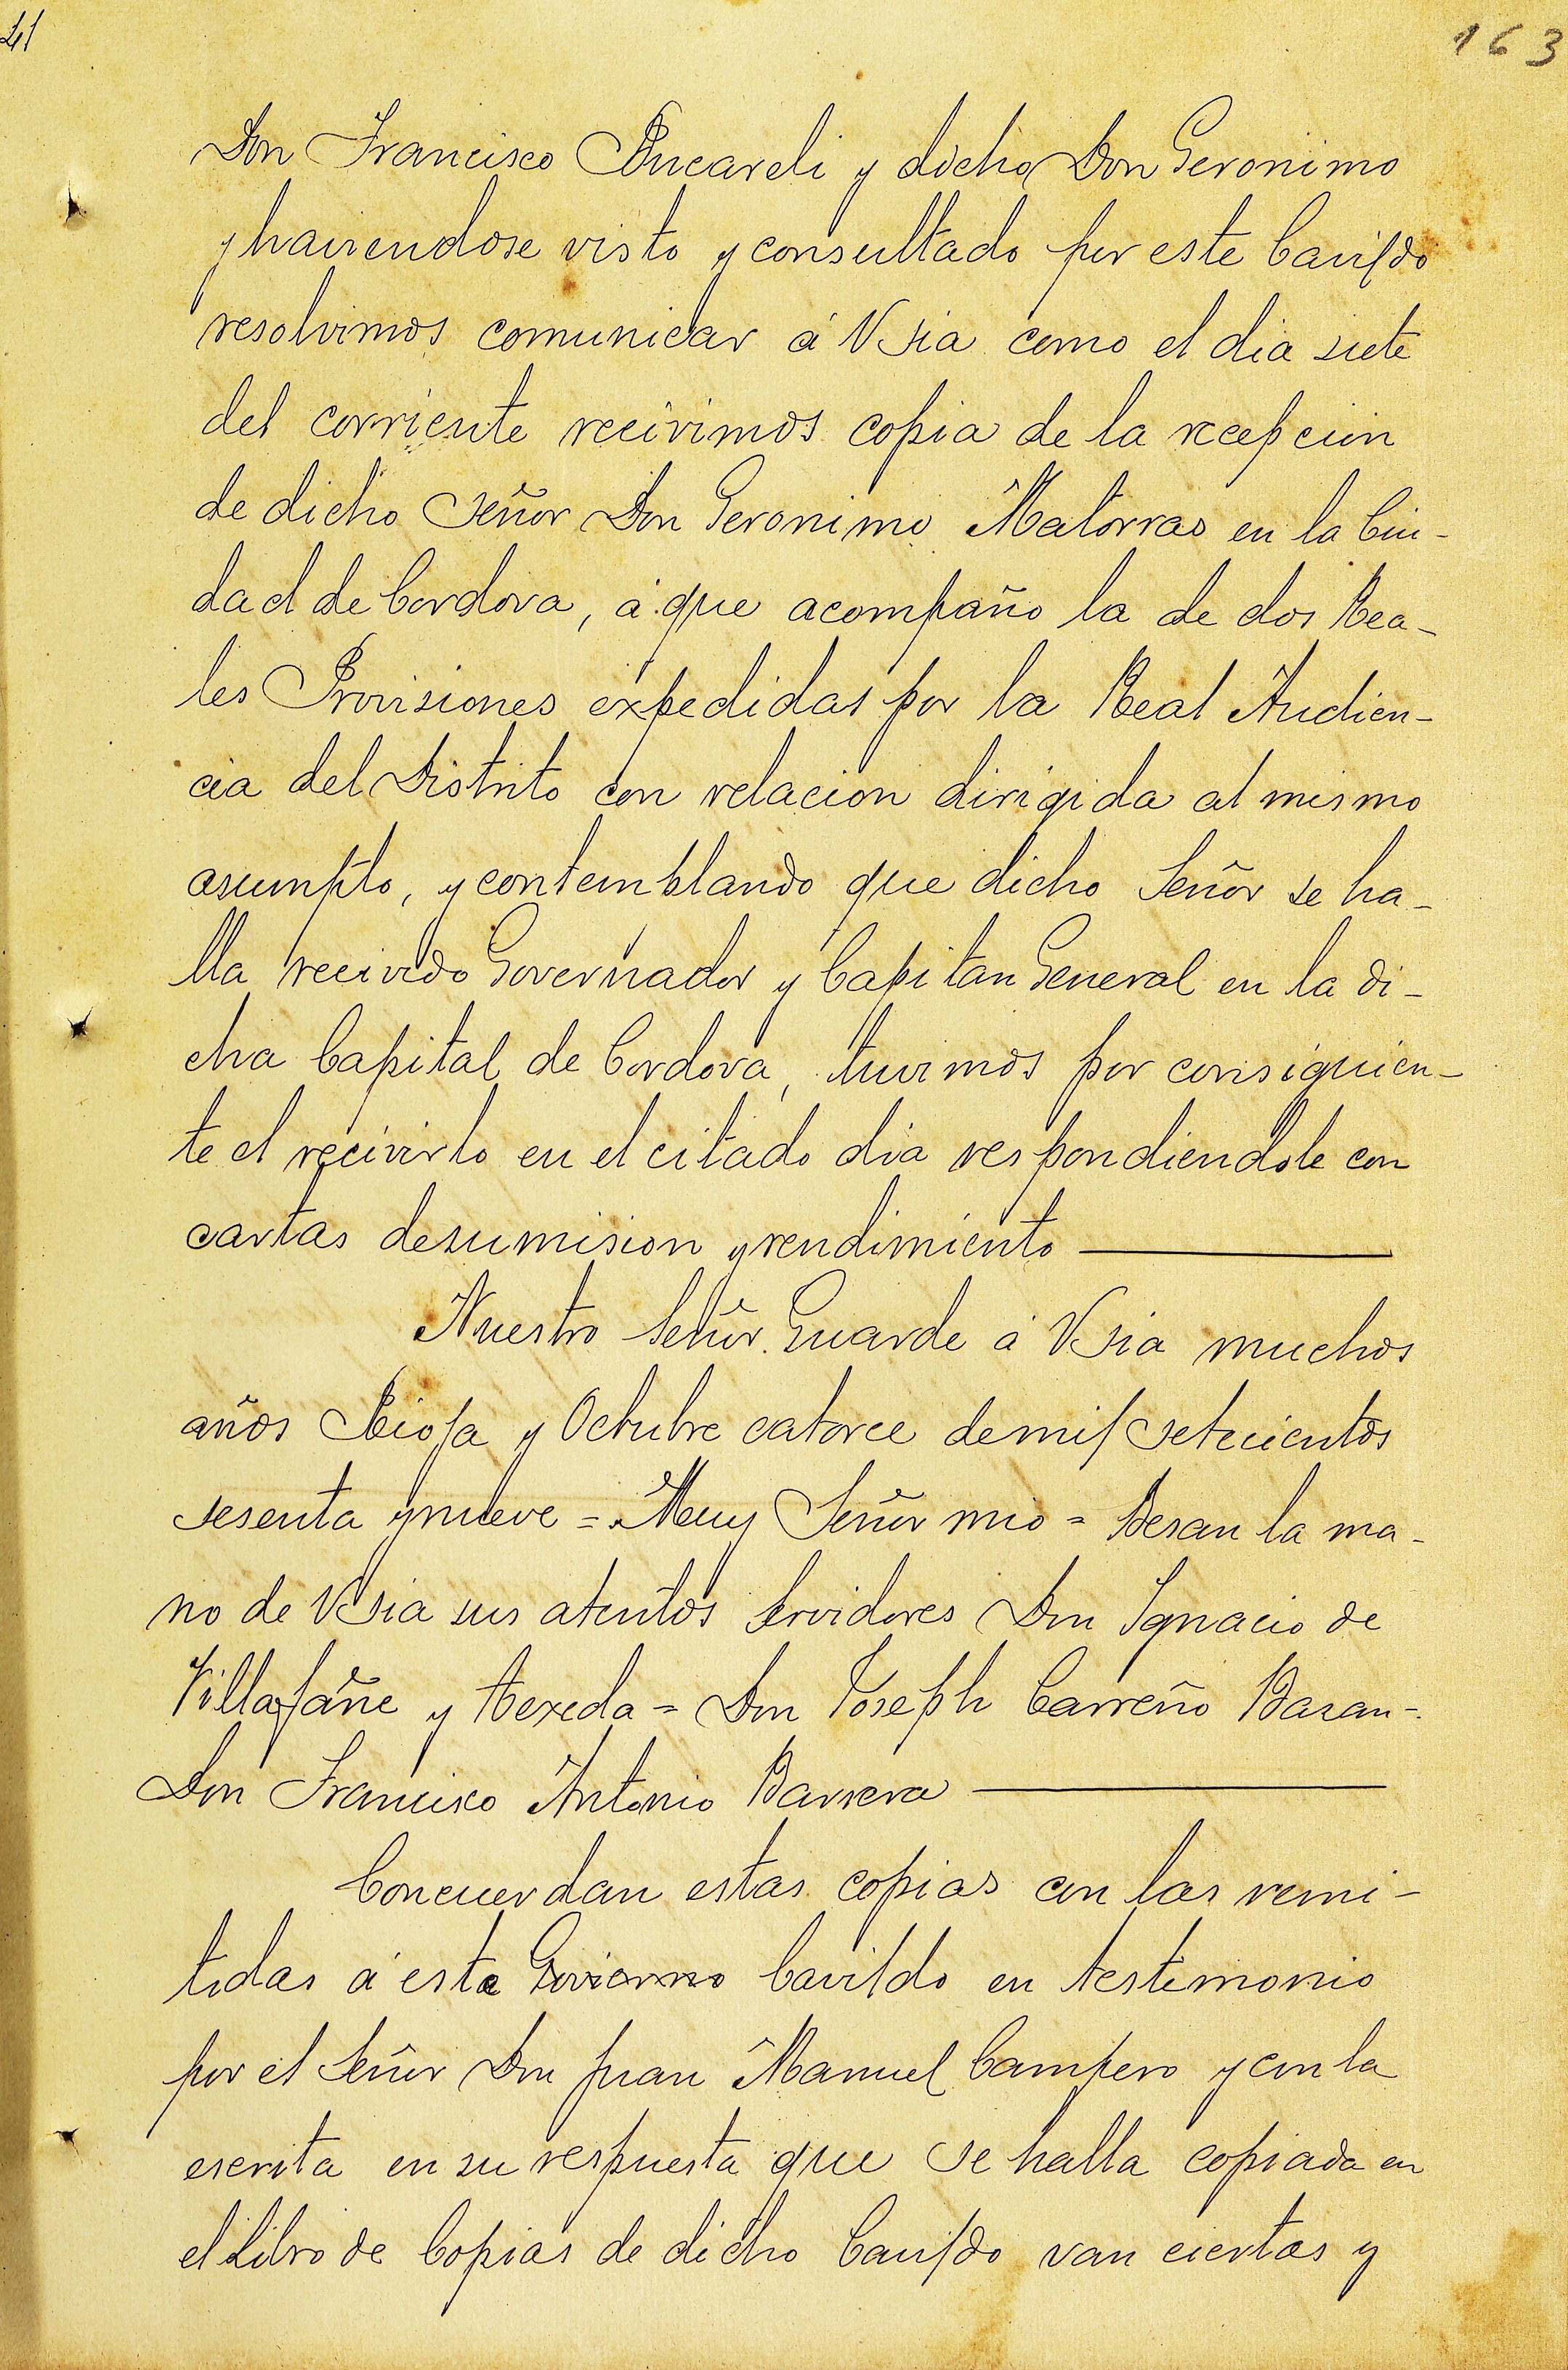 41
163
Don Francisco Bucareli y dicho Don Geronimo
y haviendose visto y consultado por este Cavildo
resolvimos comunicar á Vsia como el dia siete
del corriente recivimos copia de la recepcion
de dicho Señor Don Geronimo Matorras en la Ciu-
dad de Cordova, á que acompaño la de dos Rea-
les Provisiones expedidas por la Real Audien-
cia del Distrito con relacion dirigida al mismo
asumpto, y contemblando que dicho Señor se ha-
lla recivido Governador y Capitan General en la di-
cha Capital de Cordova, tuvimos por consiguien-
te el recivirlo en el citado dia respondiendole con
cartas de sumision y rendimiento
Nuestro Señor Guarde á Vsia muchos
años Rioja y Octubre catorce de mil setecientos
sesenta y nueve = Muy Señor mio = Besan la ma-
no de Vsia sus atentos servidores Don Ignacio de
Villafañe y texeda = Don Joseph Carreño Bazan =
Don Francisco Antonio Barrera
Concuerdan estas copias con las remi-
tidas á este Govierno Cavildo en testimonio
por el Señor Don Juan Manuel Campero y con la
escrita en su respuesta que se halla copiada en
el Libro de Copias de dicho Cavildo van ciertas y